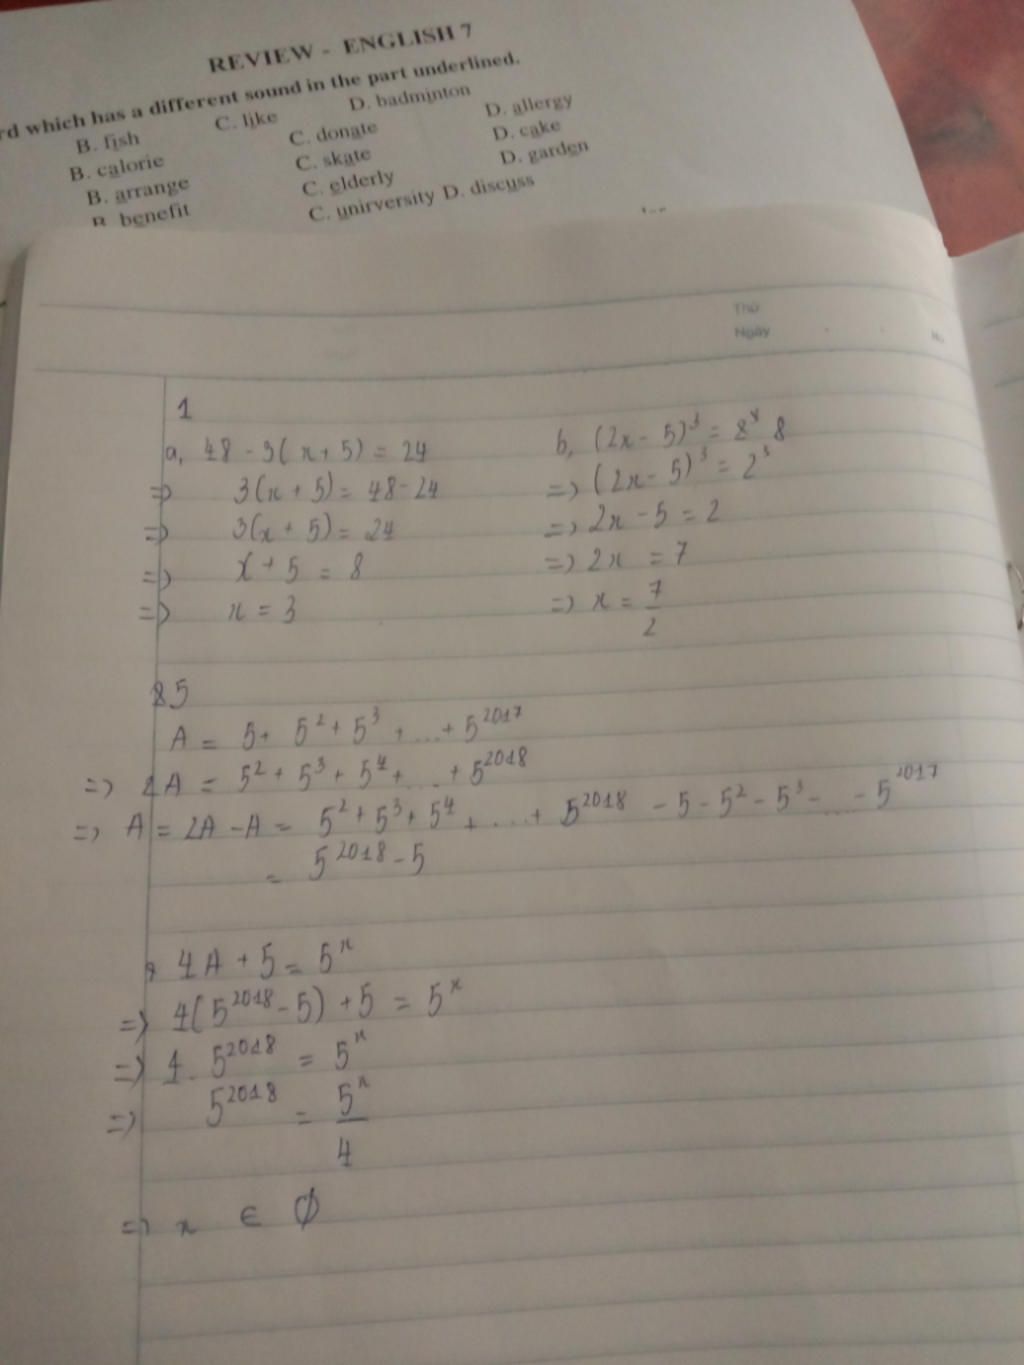 REVIEW - ENGLISH 7
rd which has a different sound in the part underlined.
B. fish C. like D. badminton
B. calorie C. donate D. allergy
B. arrange C. skate D. cake
B. benefit C. elderly D. garden
C. unirversity D. discuss
Thứ
Ngày
No
1
a, 48 - 3(x + 5) = 24
=> 3(x + 5) = 48 - 24
=> 3(x + 5) = 24
=> x + 5 = 8
=> x = 3
b, (2x - 5)³ = 8
=> (2x - 5)³ = 2³
=> 2x - 5 = 2
=> 2x = 7
=> x = 7/2
5
A = 5 + 5² + 5³ + ... + 5²⁰¹⁷
=> 2A = 5² + 5³ + 5⁴ + ... + 5²⁰¹⁸
=> A = 2A - A = 5² + 5³ + 5⁴ + ... + 5²⁰¹⁸ - 5 - 5² - 5³ - ... - 5²⁰¹⁷
= 5²⁰¹⁸ - 5
4A + 5 = 5ˣ
=> 4(5²⁰¹⁸ - 5) + 5 = 5ˣ
=> 4. 5²⁰¹⁸ = 5ˣ
=> 5²⁰¹⁸ = 5ˣ/4
=> x ∈ ∅